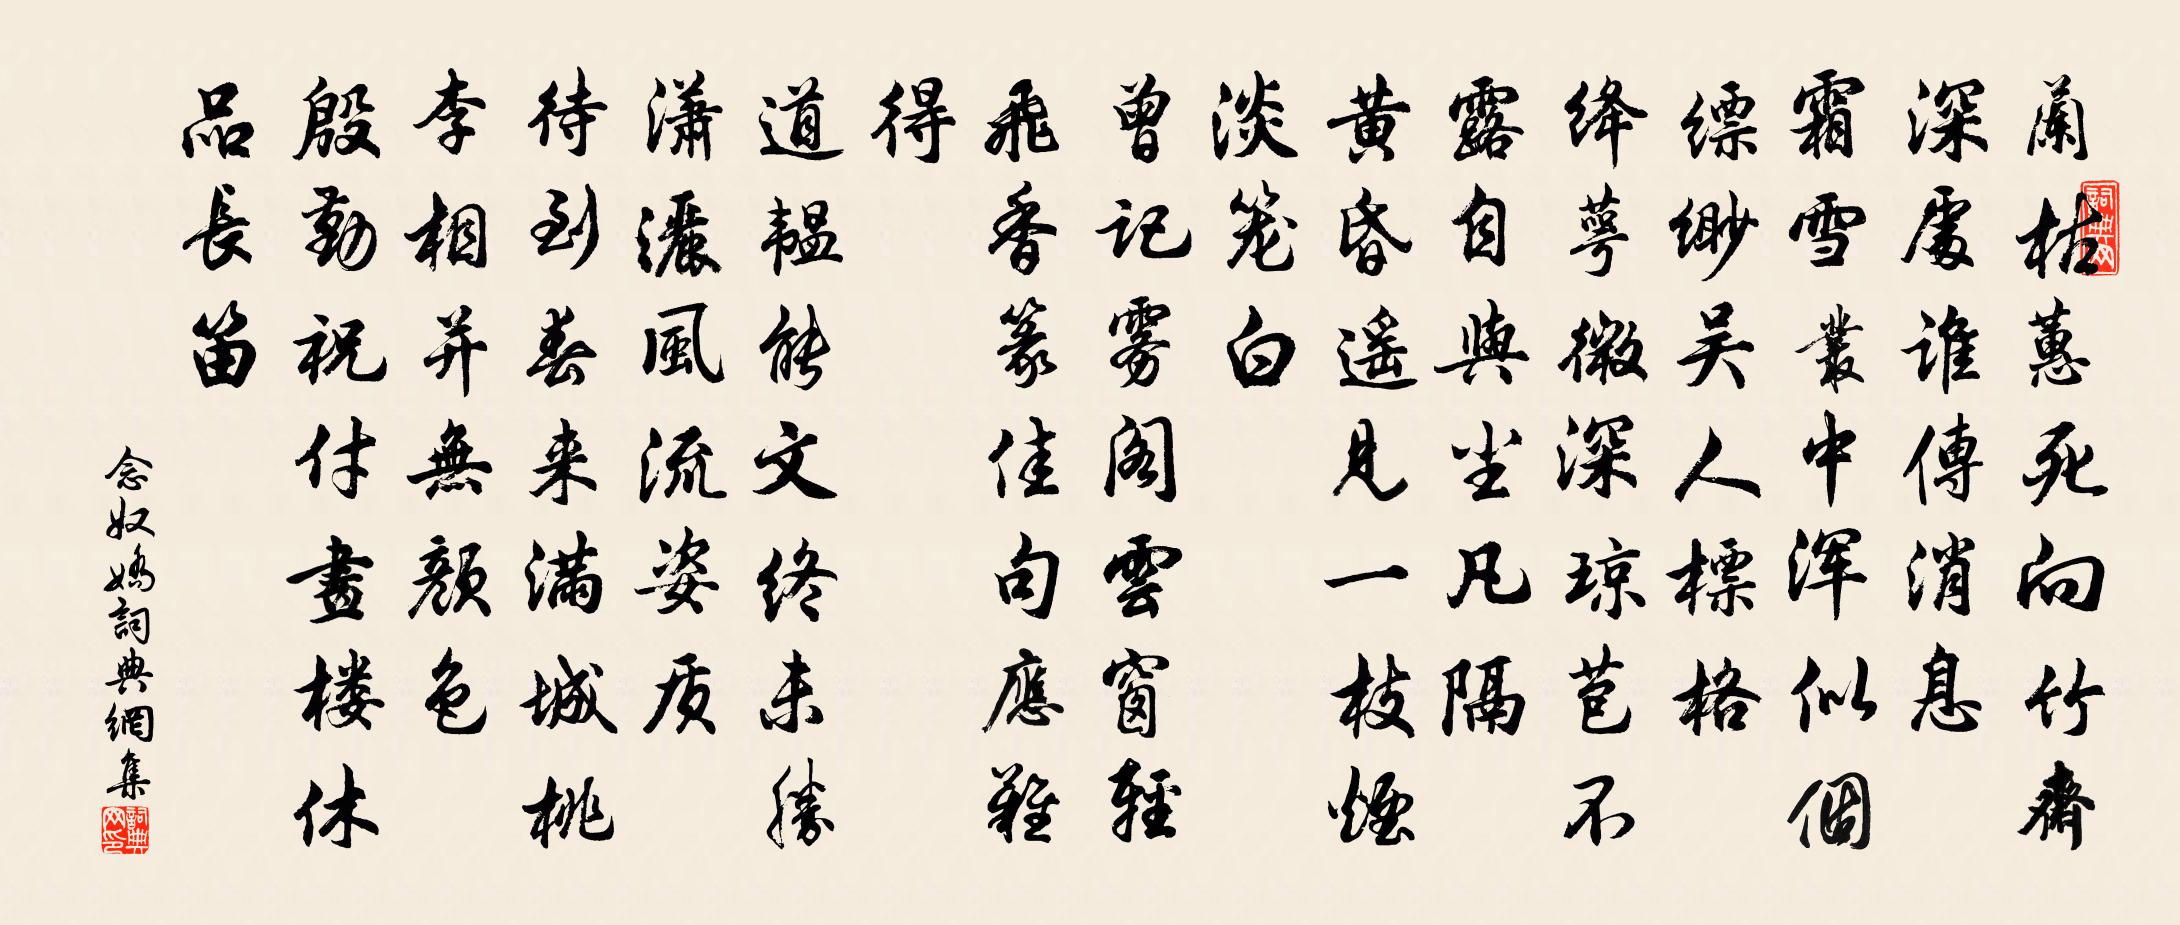 蘭枯蕙死向竹齋
深處誰傳消息
霜雪叢中渾似個
縹緲吴人標格
绛萼微深琼苞不
露自與尘凡隔
黄昏遥見一枝煙
淡笼白
曾记雾阁雲窗輕
飛香篆佳句應難
得
道韞能文终未勝
瀟灑風流姿质
待到春来满城桃
李相并無顏色
殷勤祝付畫楼休
品長笛
念奴嬌詞典網集
詞典网
詞典网印